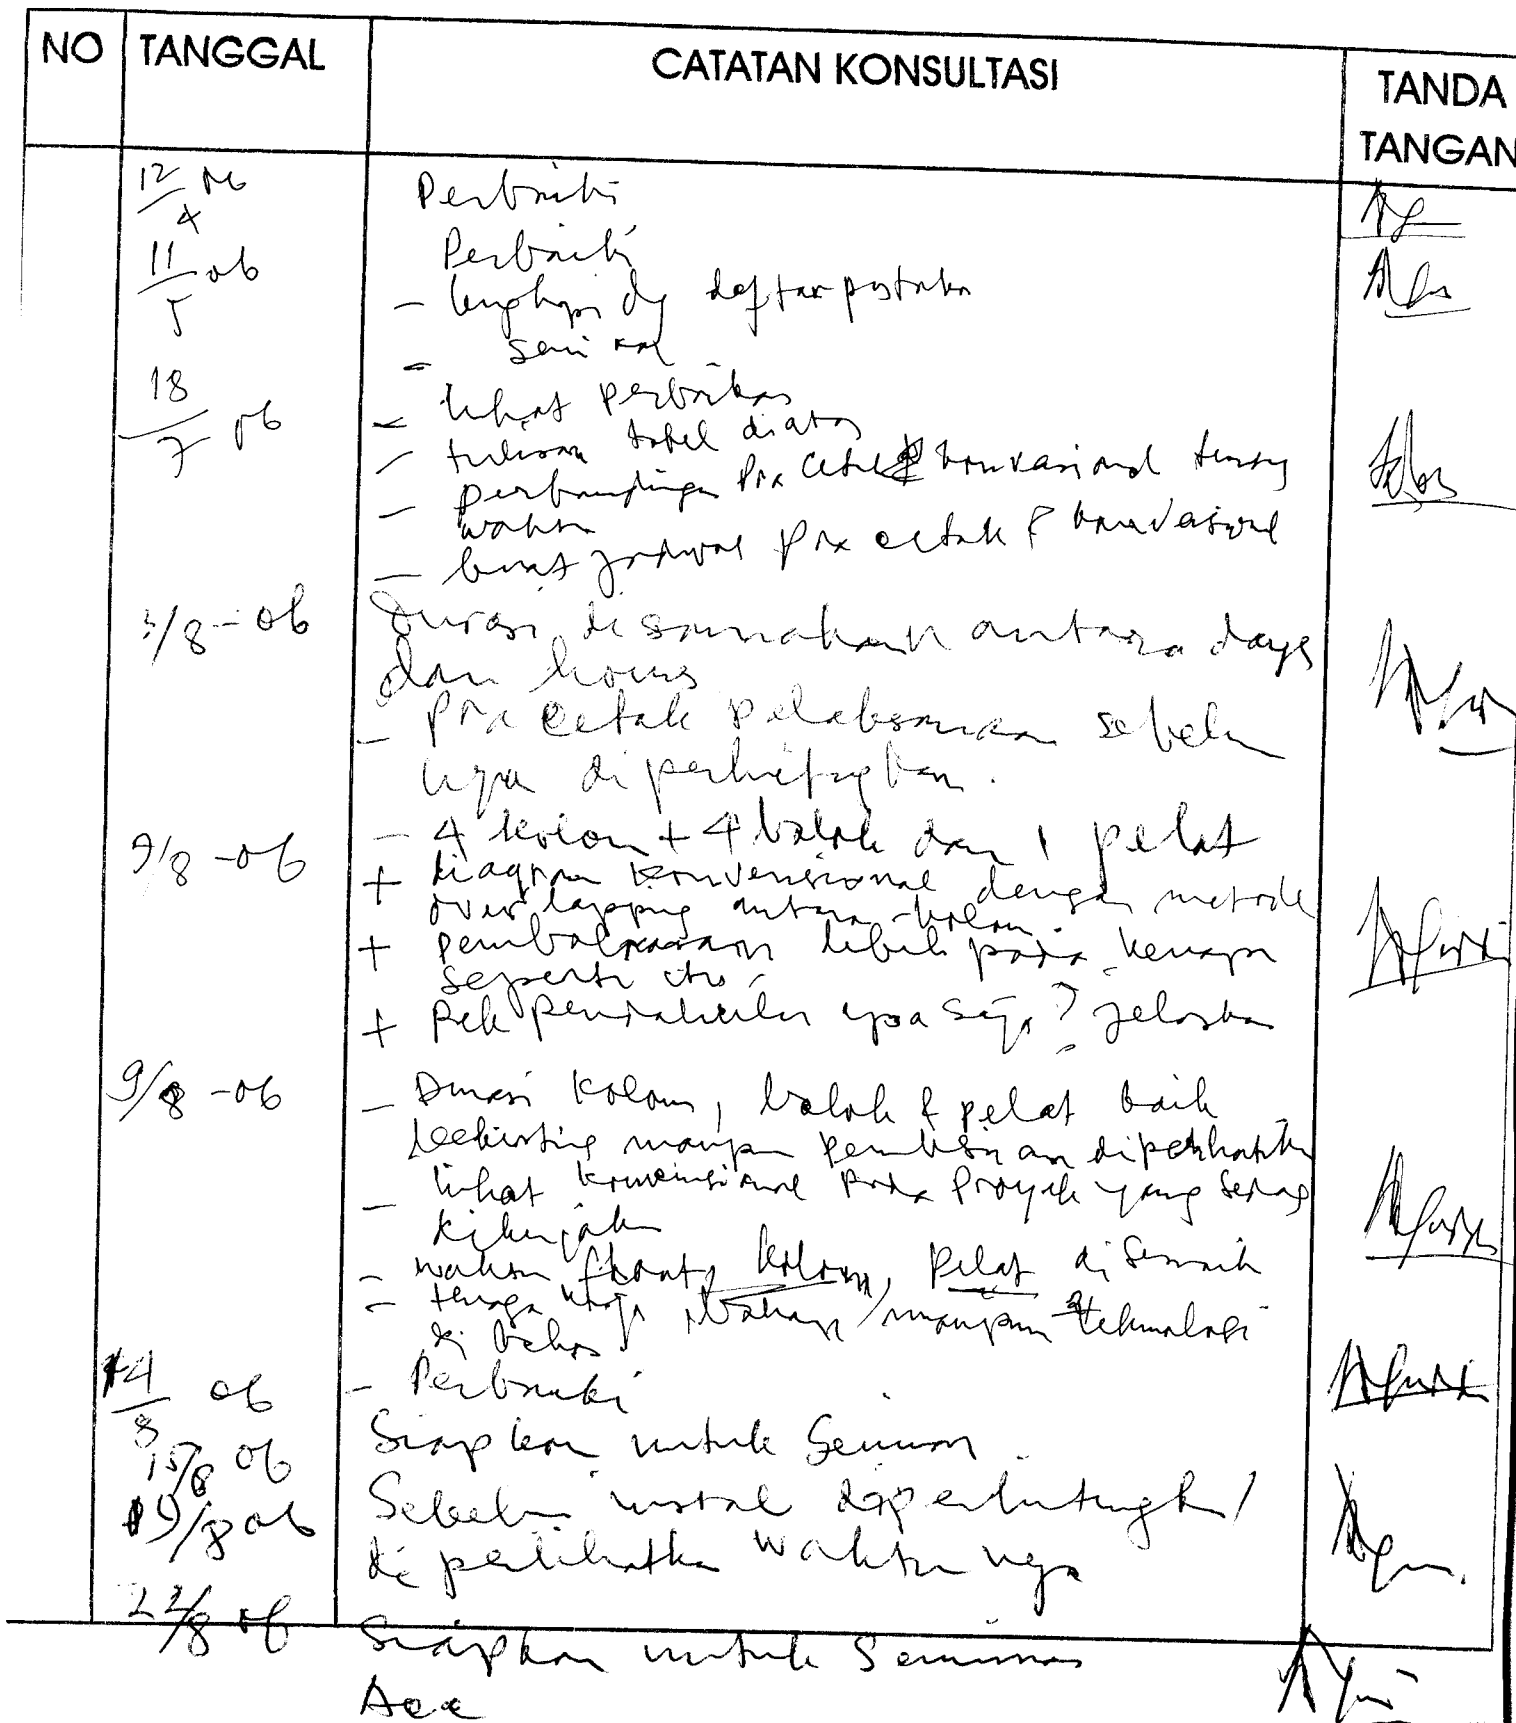 NO TANGGAL CATATAN KONSULTASI TANDA
TANGAN
12/4 06 Perbaiki
11/5 06 Perbaiki
- lengkapi dg daftar pustaka
-
18/7 06 - lihat perbaikan
- tulisan tabel diatas
- perbandingan Pra Cetak & konvensional tentang
waktu
- buat jadwal pra cetak & konvensional
3/8-06 Durasi disamakan antara days
dan hours
- Pra cetak pelaksanaan sebelum
nya diperhitungkan.
9/8-06 - 4 kolom + 4 balok dan 1 pelat
+ diagram konvensional dengan metode
over lapping antara kolom.
+ pembahasan lebih pada kenapa
seperti itu
+ Pek pendahuluan apa saja? jelaskan
9/8-06 - Durasi kolom, balok & pelat baik
maupun diperhatikan
- lihat konvensional pada proyek yang sedang
dikerjakan
- waktu kolom, pelat
- tenaga kerja, bahan/maupun teknologi
di bahas
14/8 06 - Perbaiki
15/8 06 Siapkan untuk Seminar
19/8 06 Sebelum instal diperhitungkan/
diperlihatkan waktu nya
22/8 06 Siapkan untuk Seminar
Acc